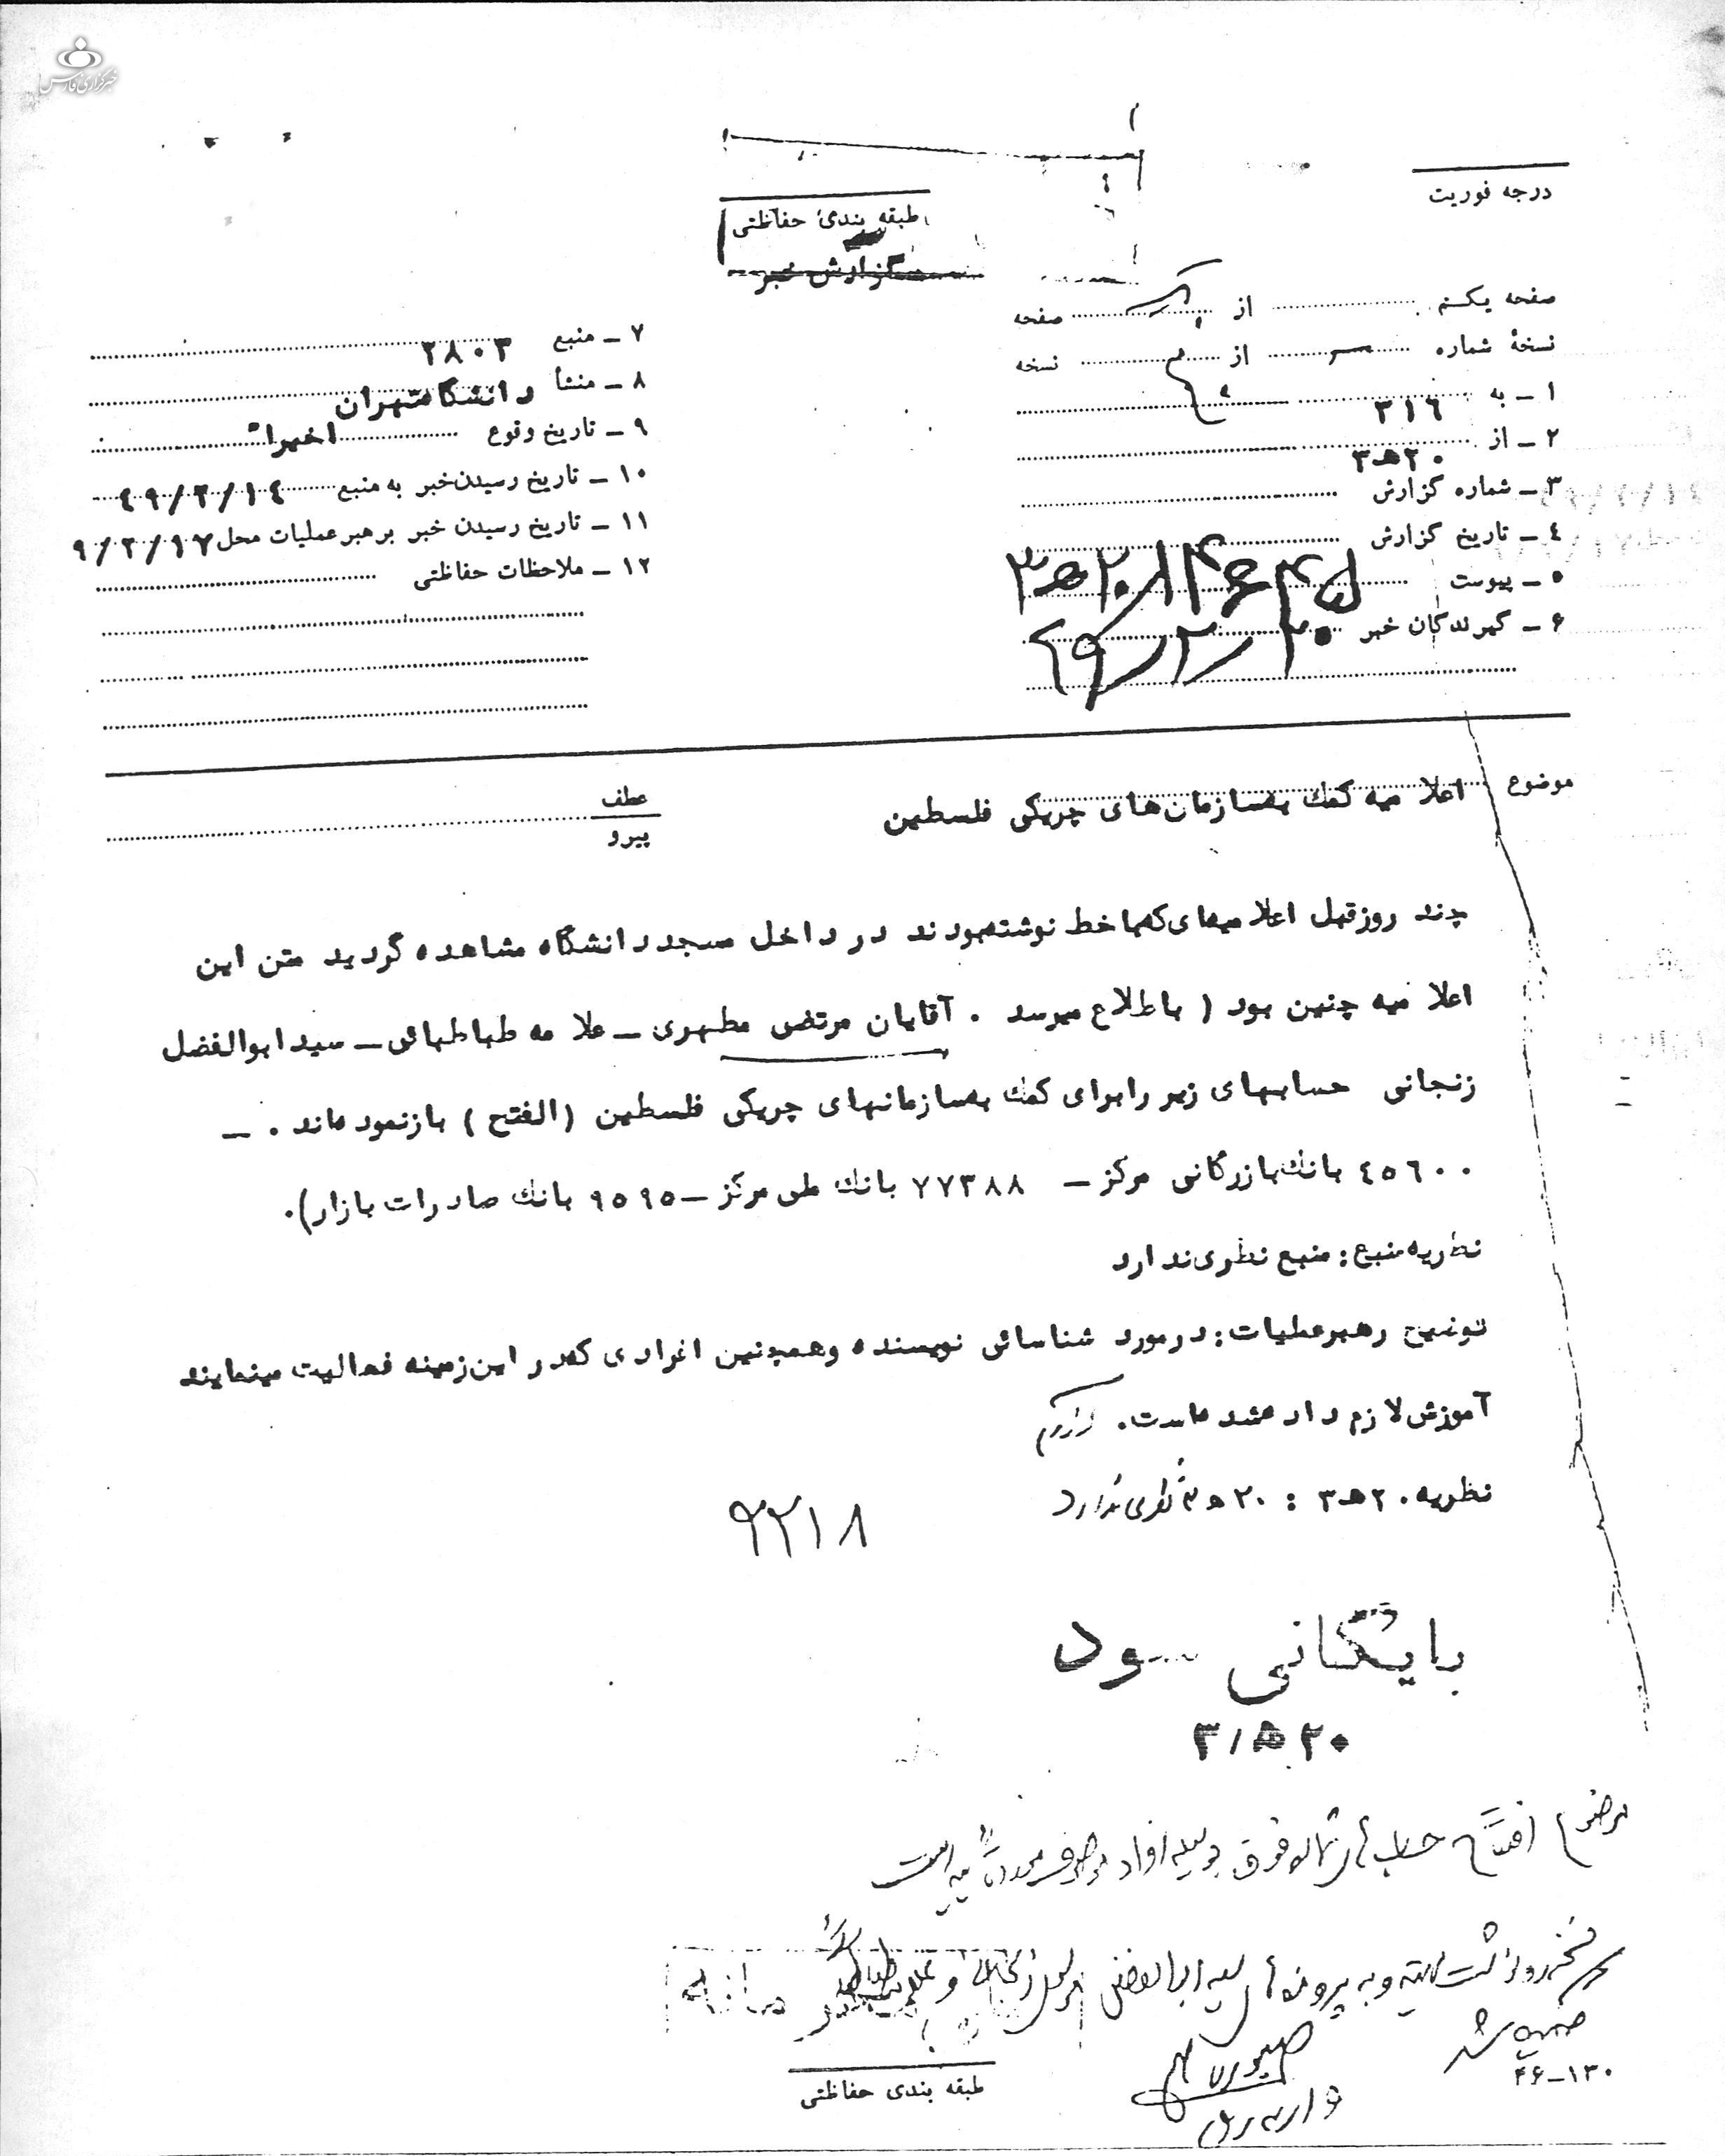 خبرگزاری فارس
درجه فوریت
طبقه بندی حفاظتی
گزارش خبر
صفحه یکم از صفحه
نسخه شماره از نسخه
۱ ـ به ۳۱۶
۲ ـ از ۲۰ﻫ۳
۳ ـ شماره گزارش
٤ ـ تاریخ گزارش
۵ ـ پیوست
۶ ـ گیرندگان خبر
۷ ـ منبع ۲۸۰۳
۸ ـ منشأ دانشگاه تهران
۹ ـ تاریخ وقوع اخیراً
۱۰ ـ تاریخ رسیدن خبر به منبع ٤۹/۲/۱٤
۱۱ ـ تاریخ رسیدن خبر برهبر عملیات محل ۹/۲/۱۷
۱۲ ـ ملاحظات حفاظتی
۴۹/۲/۲۰
موضوع اعلامیه کمک به سازمان های چریکی فلسطین
عطف
پیرو
چند روز قبل اعلامیه ای که با خط نوشته بودند در داخل مسجد دانشگاه مشاهده گردید متن این
اعلامیه چنین بود ( باطلاع میرسد . آقایان مرتضی مطهری ـ علامه طباطبائی ـ سید ابوالفضل
زنجانی حسابهای زیر را برای کمک به سازمانهای چریکی فلسطین (الفتح ) باز نموده اند . ـ
٤٥٦۰۰ بانک بازرگانی مرکز ـ ۷۷۳۸۸ بانک ملی مرکز ـ ۹٥۹٥ بانک صادرات بازار).
نظریه منبع : منبع نظری ندارد
توضیح رهبر عملیات : در مورد شناسائی نویسنده و همچنین افرادی که در این زمینه فعالیت مینمایند
آموزش لازم داده شده است .
نظریه ۲۰ﻫ۳ : ۲۰ ﻫ ۳ نظری ندارد
۹۲۱۸
بایگانی شود
۲۰ﻫ/۳
موضوع افتتاح حساب های فوق بوسیله افراد
طبقه بندی حفاظتی
۴۶-۱۳۰